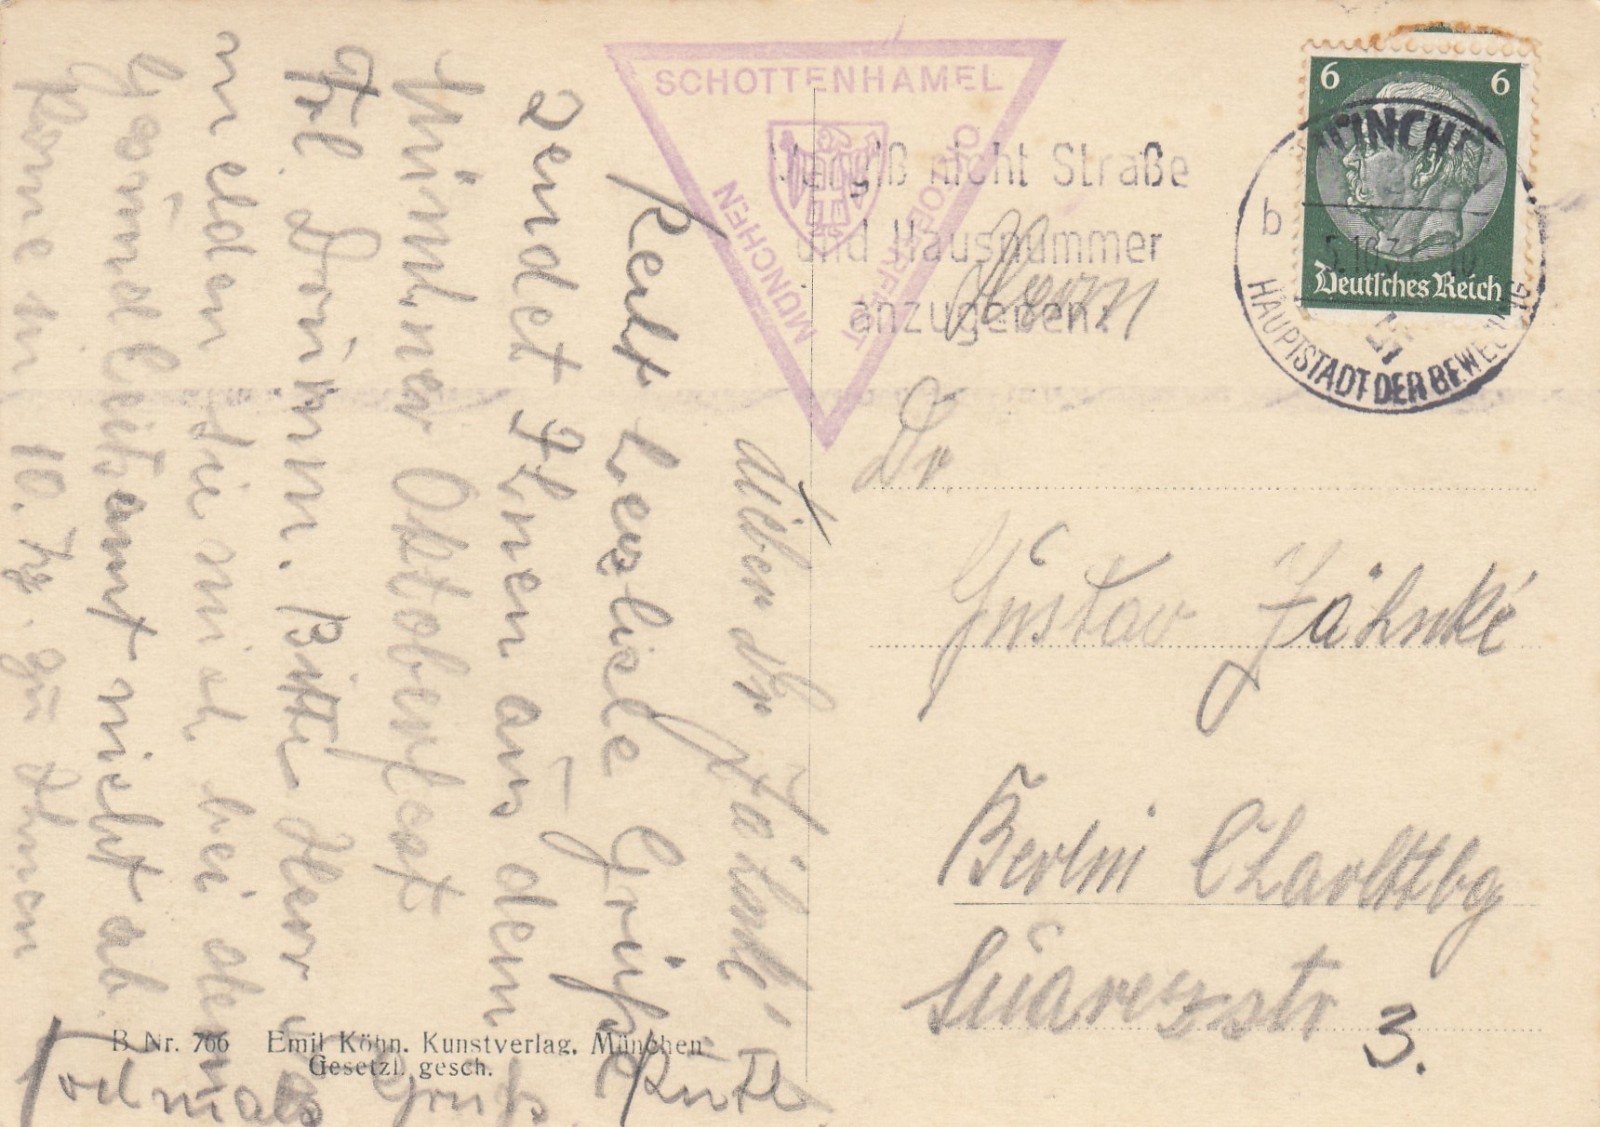 Lieber Dr Jähnke'
Recht herzliche Grüße
sendet Ihnen aus dem
Münchner Oktoberfest
Frl Dorum. Bitte Herr
melden Sie mich bei dem
Gesundheitsamt nicht ab.
komme am 10. zu Ihnen
Nochmals Gruß Ruth
SCHOTTENHAMEL
OKTOBERFEST
MÜNCHEN
Vergiß nicht Straße
und Hausnummer
anzugeben!
6 6
Deutsches Reich
MÜNCHEN
b
HAUPTSTADT DER BEWEGUNG
Herrn
Dr
Gustav Jähnke
Berlin Charlttbg
Suarezstr 3.
B Nr. 766 Emil Köhn, Kunstverlag, München
Gesetzl. gesch.